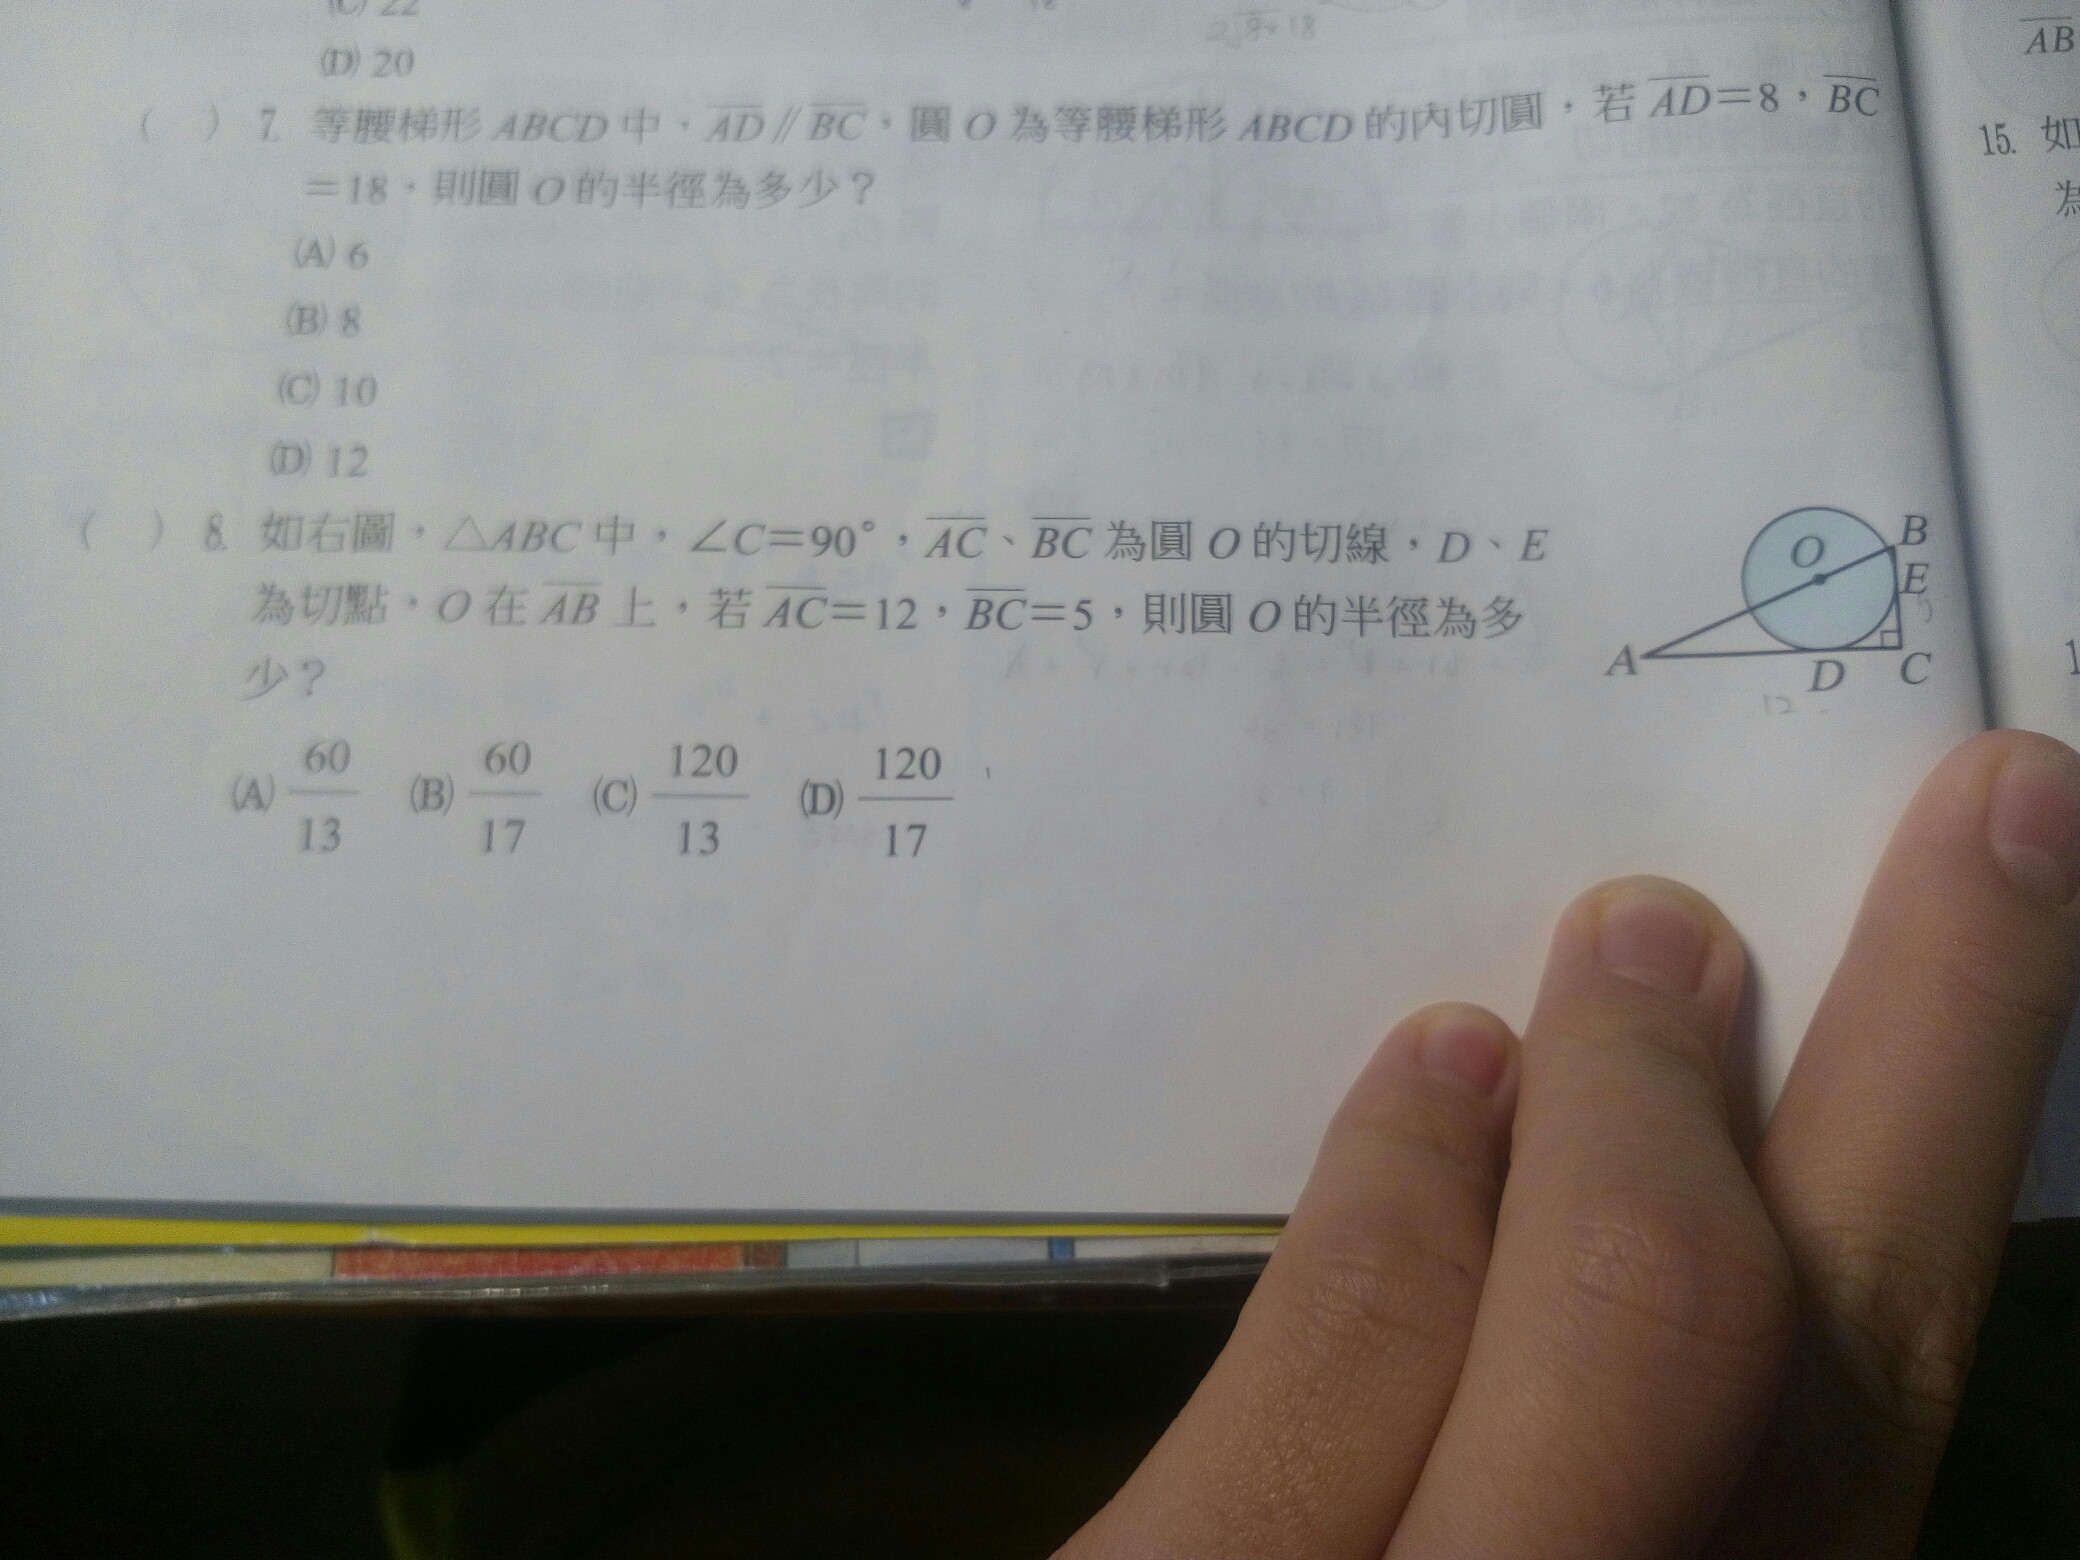 (C) 22
(D) 20
2√8×18
( ) 7. 等腰梯形 ABCD 中，AD // BC，圓 O 為等腰梯形 ABCD 的內切圓，若 AD=8，BC
=18，則圓 O 的半徑為多少？
(A) 6
(B) 8
(C) 10
(D) 12
( ) 8. 如右圖，△ABC 中，∠C=90°，AC、BC 為圓 O 的切線，D、E
為切點，O 在 AB 上，若 AC=12，BC=5，則圓 O 的半徑為多
少？
(A) 60/13 (B) 60/17 (C) 120/13 (D) 120/17
O
B
E
5
A
D
C
12
AB
15. 如
為